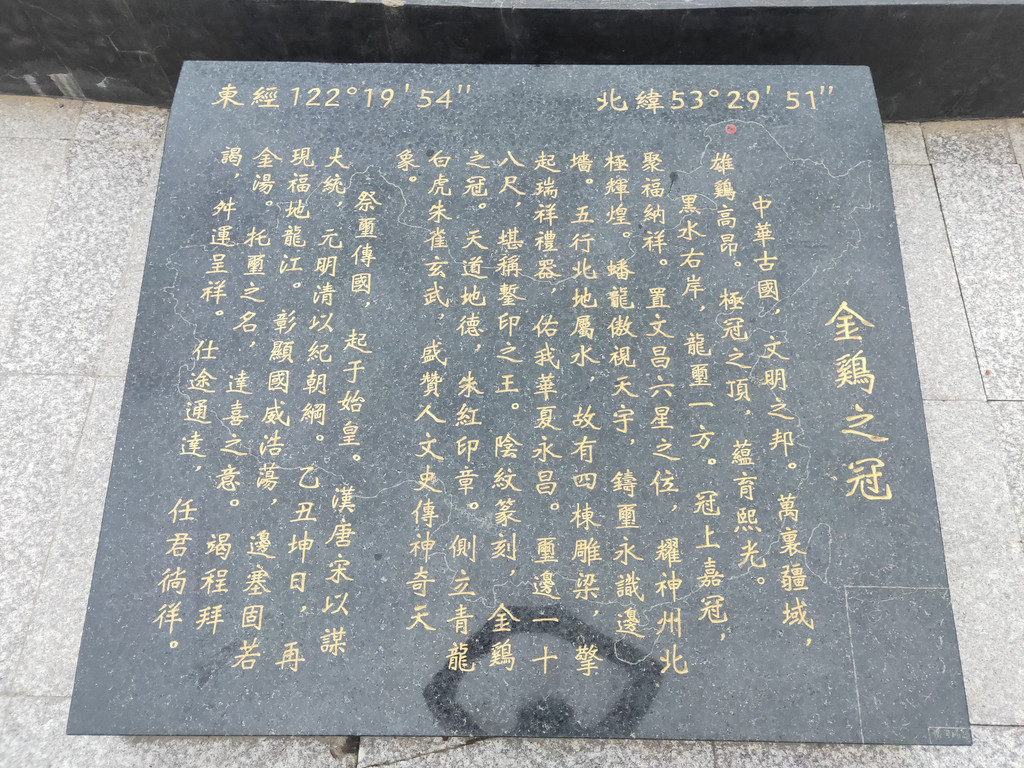 東經122°19'54"
北緯53°29'51"
金鷄之冠
中華古國，文明之邦。萬裏疆域，
雄鷄高昂。極冠之頂，蘊育熙光。
黑水右岸，龍璽一方。冠上嘉冠，
聚福納祥。置文昌六星之位，耀神州北
極輝煌。蟠龍傲視天宇，鑄璽永識邊
墻。五行北地屬水，故有四棟雕梁，擎
起瑞祥禮器，佑我華夏永昌。璽邊一十
八尺，堪稱鏨印之王。陰紋篆刻，金鷄
之冠。天道地德，朱紅印章。側立青龍
白虎朱雀玄武，盛贊人文史傳神奇天
象。
祭璽傳國，起于始皇。漢唐宋以謀
大統，元明清以紀朝綱。乙丑坤日，再
現福地龍江。彰顯國威浩蕩，邊塞固若
金湯。托璽之名，達喜之意。竭程拜
謁，舛運呈祥。仕途通達，任君徜徉。